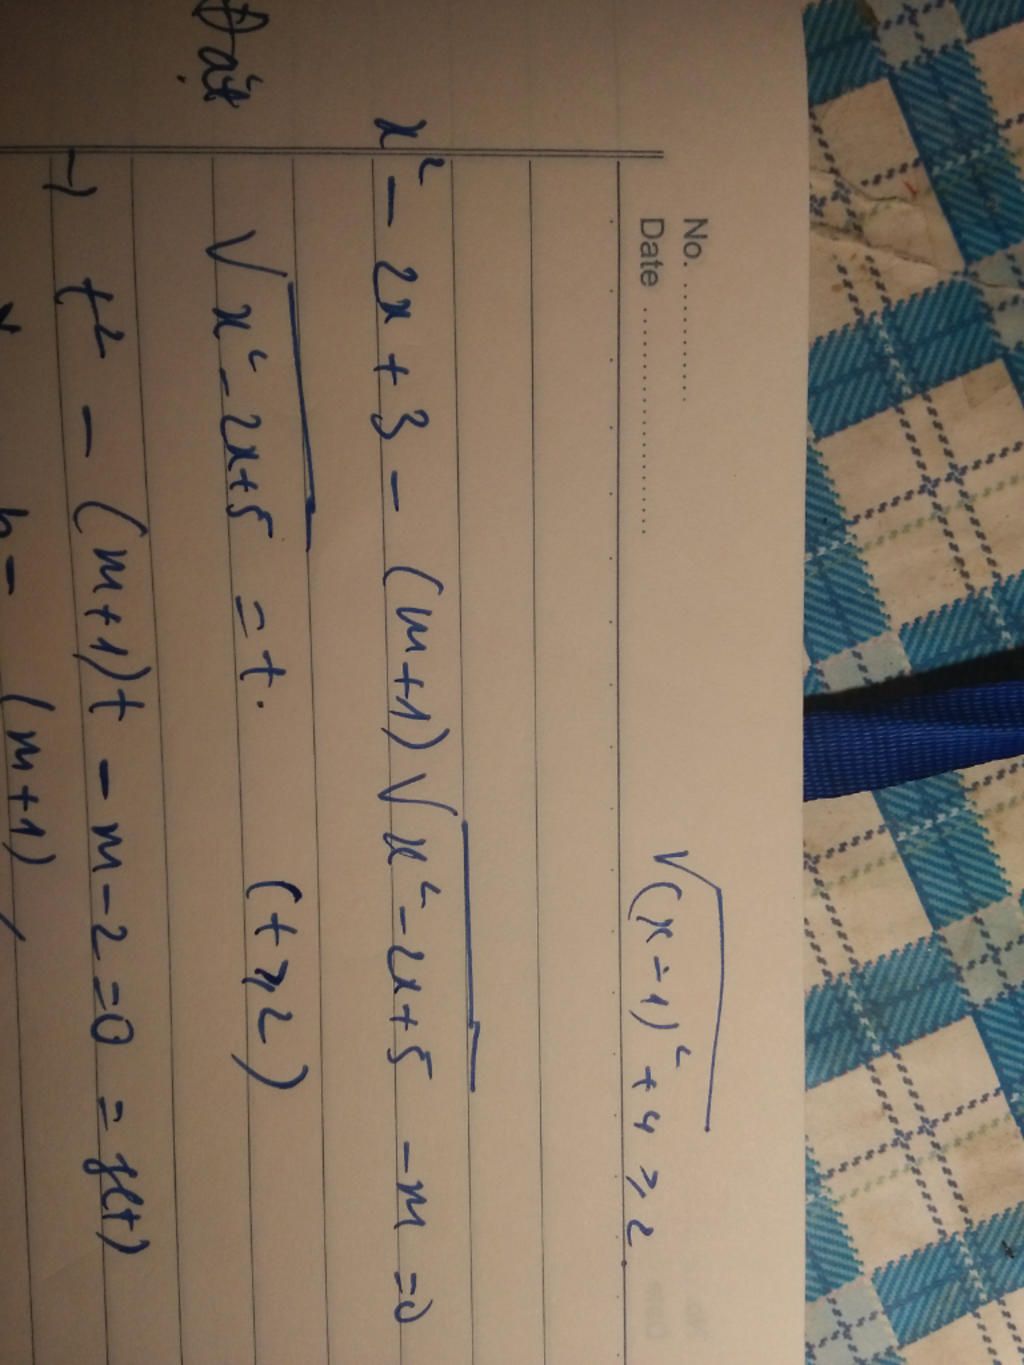 No. ............
Date ........................
√(x-1)² + 4 ⩾ 2
x² - 2x + 3 - (m+1) √x² - 2x + 5 - m = 0
Đặt √x² - 2x + 5 = t. (t ⩾ 2)
→ t² - (m+1)t - m - 2 = 0 = f(t)
(m+1)